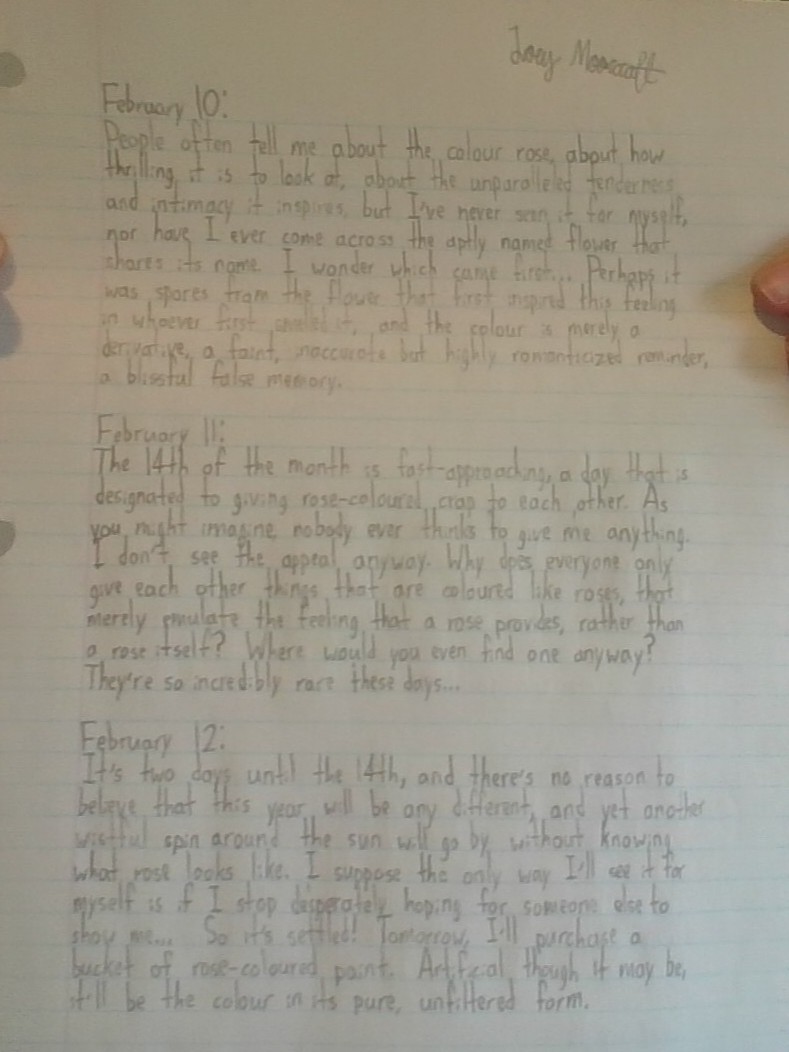 Joey Moorcraft
February 10:
People often tell me about the colour rose, about how
thrilling it is to look at, about the unparalleled tenderness
and intimacy it inspires, but I've never seen it for myself,
nor have I ever come across the aptly named flower that
shares its name. I wonder which came first... Perhaps it
was spores from the flower that first inspired this feeling
in whoever first smelled it, and the colour is merely a
derivative, a faint, inaccurate but highly romanticized reminder,
a blissful false memory.
February 11:
The 14th of the month is fast-approaching, a day that is
designated to giving rose-coloured crap to each other. As
you might imagine, nobody ever thinks to give me anything.
I don't see the appeal, anyway. Why does everyone only
give each other things that are coloured like roses, that
merely emulate the feeling that a rose provides, rather than
a rose itself? Where would you even find one anyway?
They're so incredibly rare these days...
February 12:
It's two days until the 14th, and there's no reason to
believe that this year will be any different, and yet another
wistful spin around the sun will go by without knowing
what rose looks like. I suppose the only way I'll see it for
myself is if I stop desperately hoping for someone else to
show me... So it's settled! Tomorrow, I'll purchase a
bucket of rose-coloured paint. Artificial though it may be,
it'll be the colour in its pure, unfiltered form.